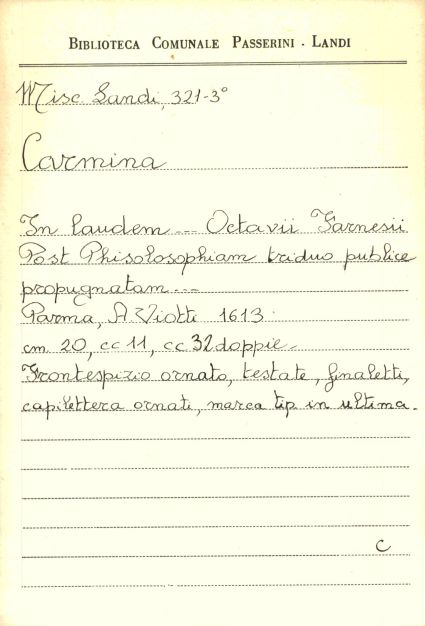 BIBLIOTECA COMUNALE PASSERINI - LANDI
Misc. Landi, 321-3°
Carmina
In laudem --- Octavii Farnesii
Post Phisolosophiam triduo publice
propugnatam ---
Parma, A. Viotti 1613
cm 20, cc 11, cc 32 doppie -
Frontespizio ornato, testate, finaletti,
capilettera ornati, marca tip in ultima.
C